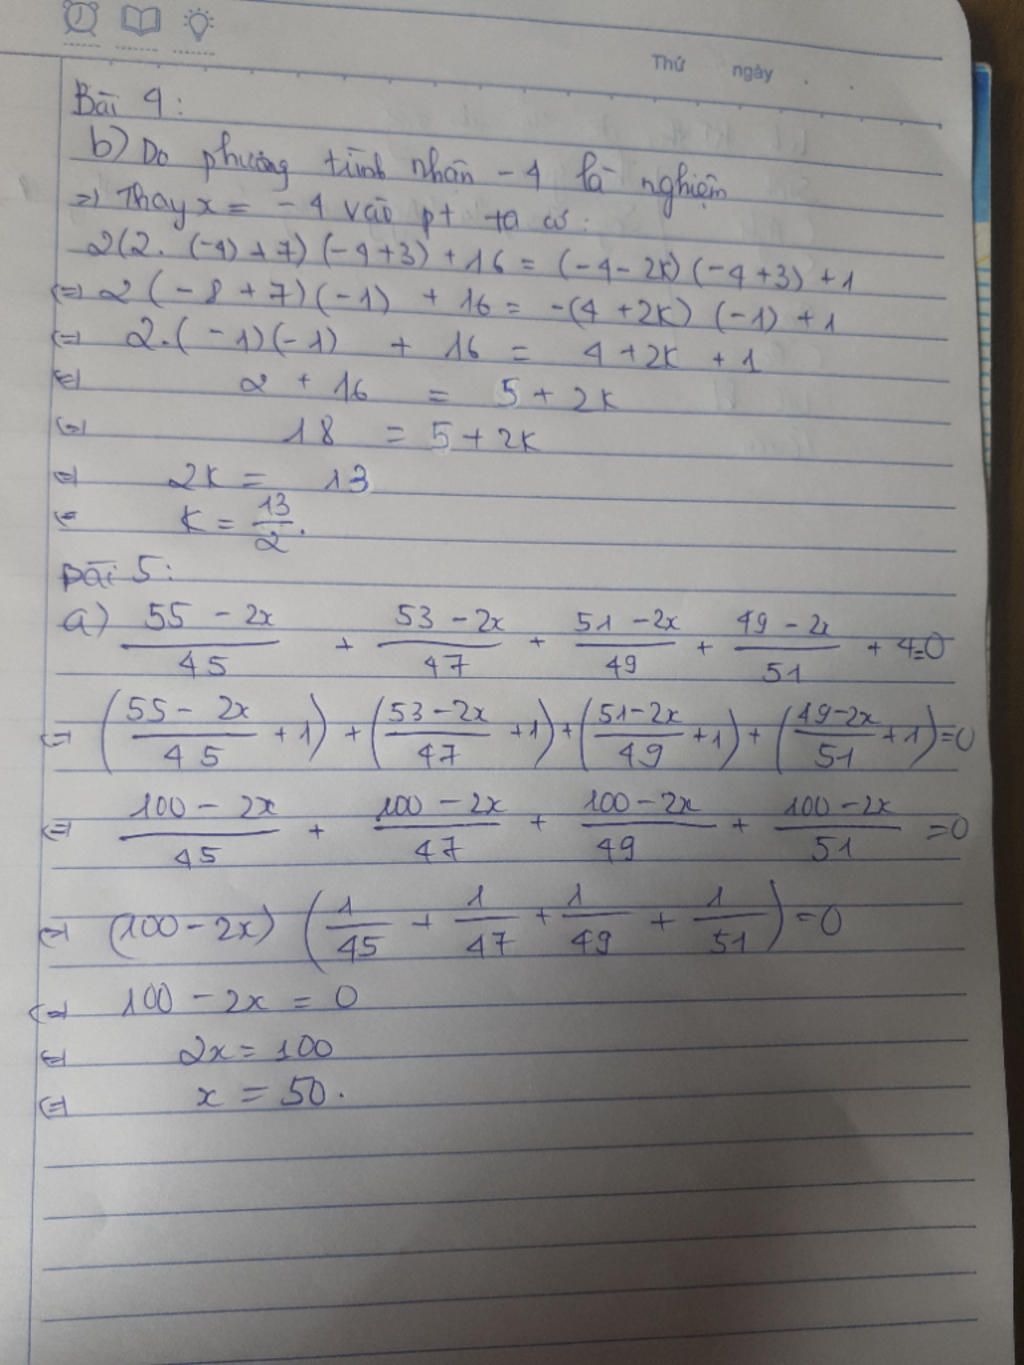 Thứ ngày
Bài 4:
b) Do phương trình nhận -4 là nghiệm
=> Thay x = -4 vào pt ta có:
2(2.(-4)+7)(-4+3)+16 = (-4-2k)(-4+3)+1
<=> 2(-8+7)(-1) + 16 = -(4+2k)(-1)+1
<=> 2.(-1)(-1) + 16 = 4+2k+1
<=> 2+16 = 5+2k
<=> 18 = 5+2k
<=> 2k = 13
<=> k = 13/2.
Bài 5:
a) (55-2x)/45 + (53-2x)/47 + (51-2x)/49 + (49-2x)/51 + 4=0
<=> ((55-2x)/45 +1) + ((53-2x)/47 +1) + ((51-2x)/49 +1) + ((49-2x)/51 +1) =0
<=> (100-2x)/45 + (100-2x)/47 + (100-2x)/49 + (100-2x)/51 =0
<=> (100-2x) (1/45 + 1/47 + 1/49 + 1/51) =0
<=> 100-2x = 0
<=> 2x = 100
<=> x = 50.